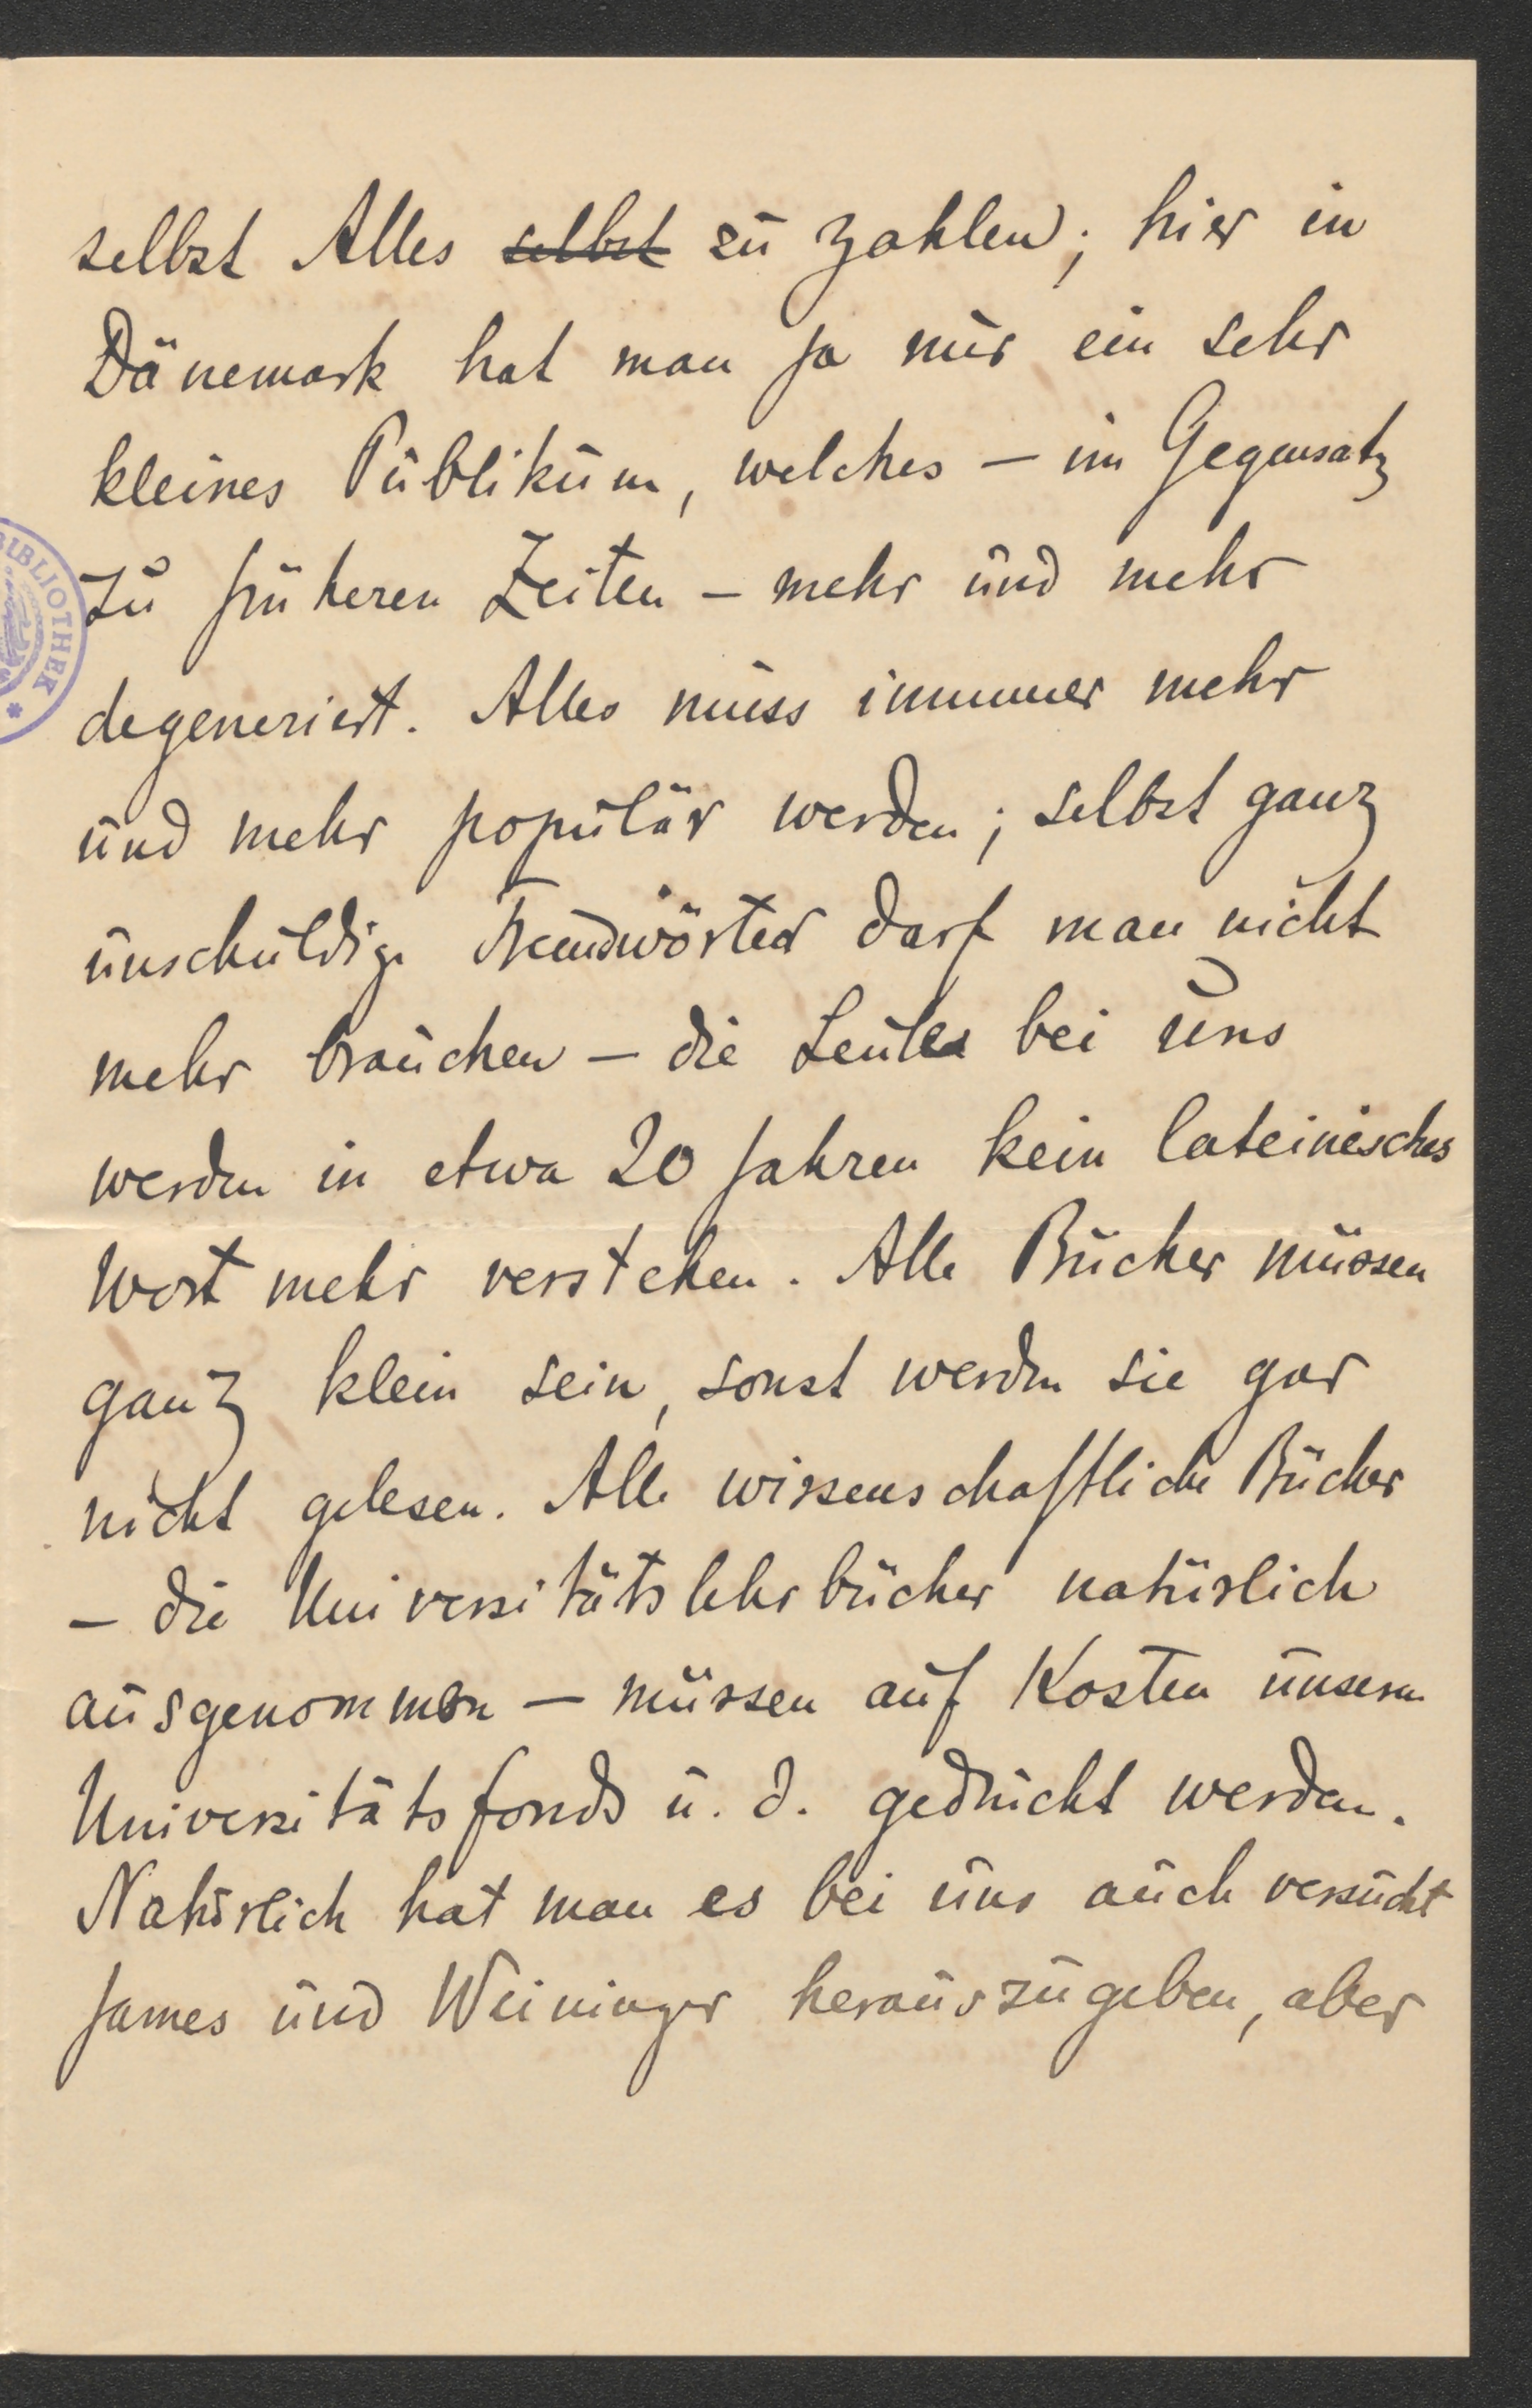 selbst Alles selbst zu zahlen; hier in
Dänemark hat man ja nur ein sehr
kleines Publikum, welches – im Gegensatz
zu früheren Zeiten – mehr und mehr
degeneriert. Alles muss immer mehr
und mehr populär werden; selbst ganz
unschuldige Fremdwörter darf man nicht
mehr brauchen – die Leute bei uns
werden in etwa 20 Jahren kein lateinisches
Wort mehr verstehen. Alle Bücher müssen
ganz klein sein, sonst werden sie gar
nicht gelesen. Alle wissenschaftliche Bücher
– die Universitätslehrbücher natürlich
ausgenommen – müssen auf Kosten unseren
Universitätsfonds u. d. gedruckt werden.
Natürlich hat man es bei uns auch versucht
James und Weininger herauszugeben, aber
BIBLIOTHEK *